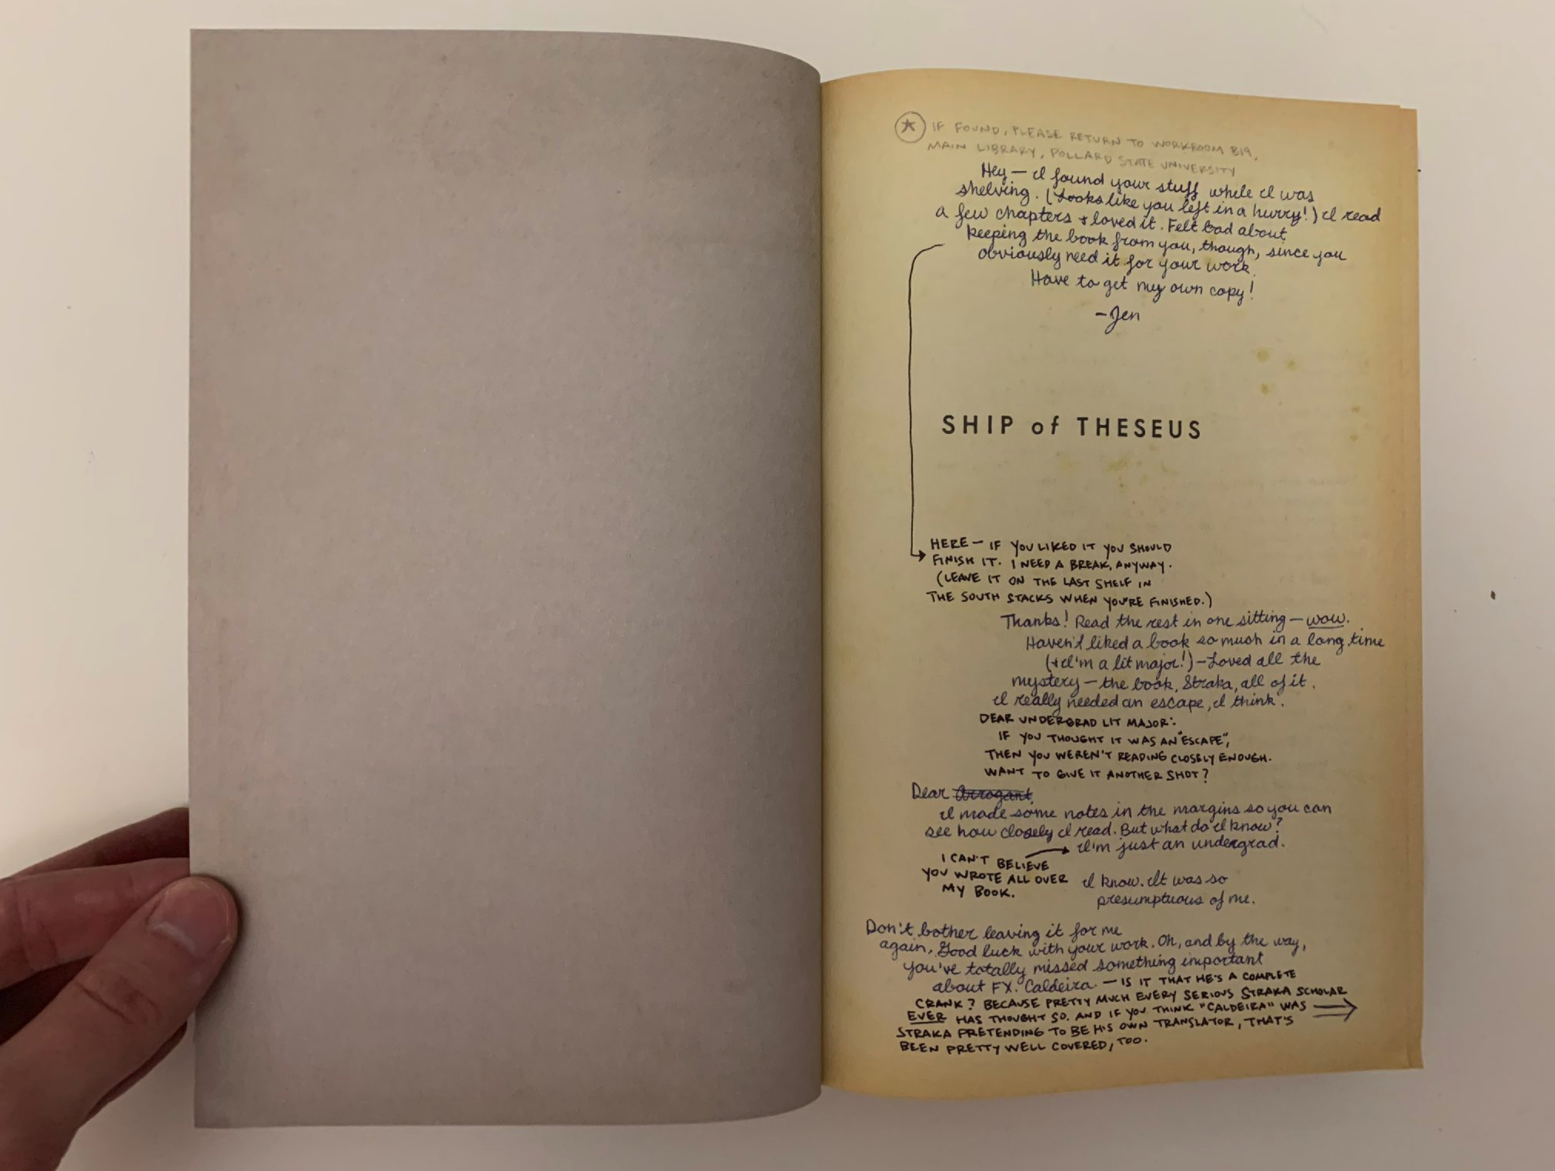 IF FOUND, PLEASE RETURN TO WORKROOM B19,
MAIN LIBRARY, POLLARD STATE UNIVERSITY
Hey — I found your stuff while I was
shelving. (Looks like you left in a hurry!) I read
a few chapters + loved it. Felt bad about
keeping the book from you, though, since you
obviously need it for your work.
Have to get my own copy!
-Jen
SHIP of THESEUS
HERE — IF YOU LIKED IT YOU SHOULD
FINISH IT. I NEED A BREAK, ANYWAY.
(LEAVE IT ON THE LAST SHELF IN
THE SOUTH STACKS WHEN YOU'RE FINISHED.)
Thanks! Read the rest in one sitting — wow.
Haven't liked a book so much in a long time
(+ I'm a lit major!) — Loved all the
mystery — the book, Straka, all of it.
I really needed an escape, I think.
DEAR UNDERGRAD LIT MAJOR:
IF YOU THOUGHT IT WAS AN "ESCAPE",
THEN YOU WEREN'T READING CLOSELY ENOUGH.
WANT TO GIVE IT ANOTHER SHOT?
Dear Arrogant
I made some notes in the margins so you can
see how closely I read. But what do I know?
I'm just an undergrad.
I CAN'T BELIEVE
YOU WROTE ALL OVER
MY BOOK.
I know. It was so
presumptuous of me.
Don't bother leaving it for me
again. Good luck with your work. Oh, and by the way,
you've totally missed something important
about FX. Caldeira — IS IT THAT HE'S A COMPLETE
CRANK? BECAUSE PRETTY MUCH EVERY SERIOUS STRAKA SCHOLAR
EVER HAS THOUGHT SO. AND IF YOU THINK "CALDEIRA" WAS
STRAKA PRETENDING TO BE HIS OWN TRANSLATOR, THAT'S
BEEN PRETTY WELL COVERED, TOO.